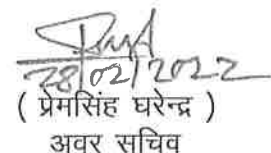 28/02/2022
( प्रेमसिंह घरेन्द्र )
अवर सचिव